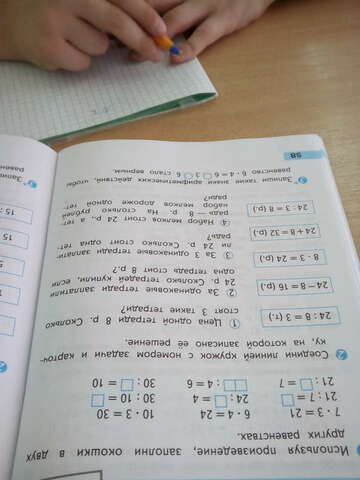 Используя произведение, заполни окошки в двух
других равенствах.
7 · 3 = 21 6 · 4 = 24 10 · 3 = 30
21 : 7 = □ 24 : □ = 4 30 : 10 = □
21 : □ = 7 □□ : 4 = 6 30 : □ = 10
2 Соедини линией кружок с номером задачи и карточ-
ку, на которой записано её решение.
① Цена одной тетради 8 р. Сколько
стоят 3 такие тетради?
② За одинаковые тетради заплатили
24 р. Сколько тетрадей купили, если
одна тетрадь стоит 8 р.?
③ За 3 одинаковые тетради заплати-
ли 24 р. Сколько стоит одна тет-
радь?
④ Набор мелков стоит 24 р., а тет-
радь — 8 р. На сколько рублей
набор мелков дороже одной тет-
ради?
24 : 8 = 3 (т.)
24 − 8 = 16 (р.)
8 · 3 = 24 (р.)
24 + 8 = 32 (р.)
24 : 3 = 8 (р.)
3* Запиши такие знаки арифметических действий, чтобы
равенство 6 · 4 = 6 □ 3 □ 6 стало верным.
58
15
15
15 :
Запи
равен